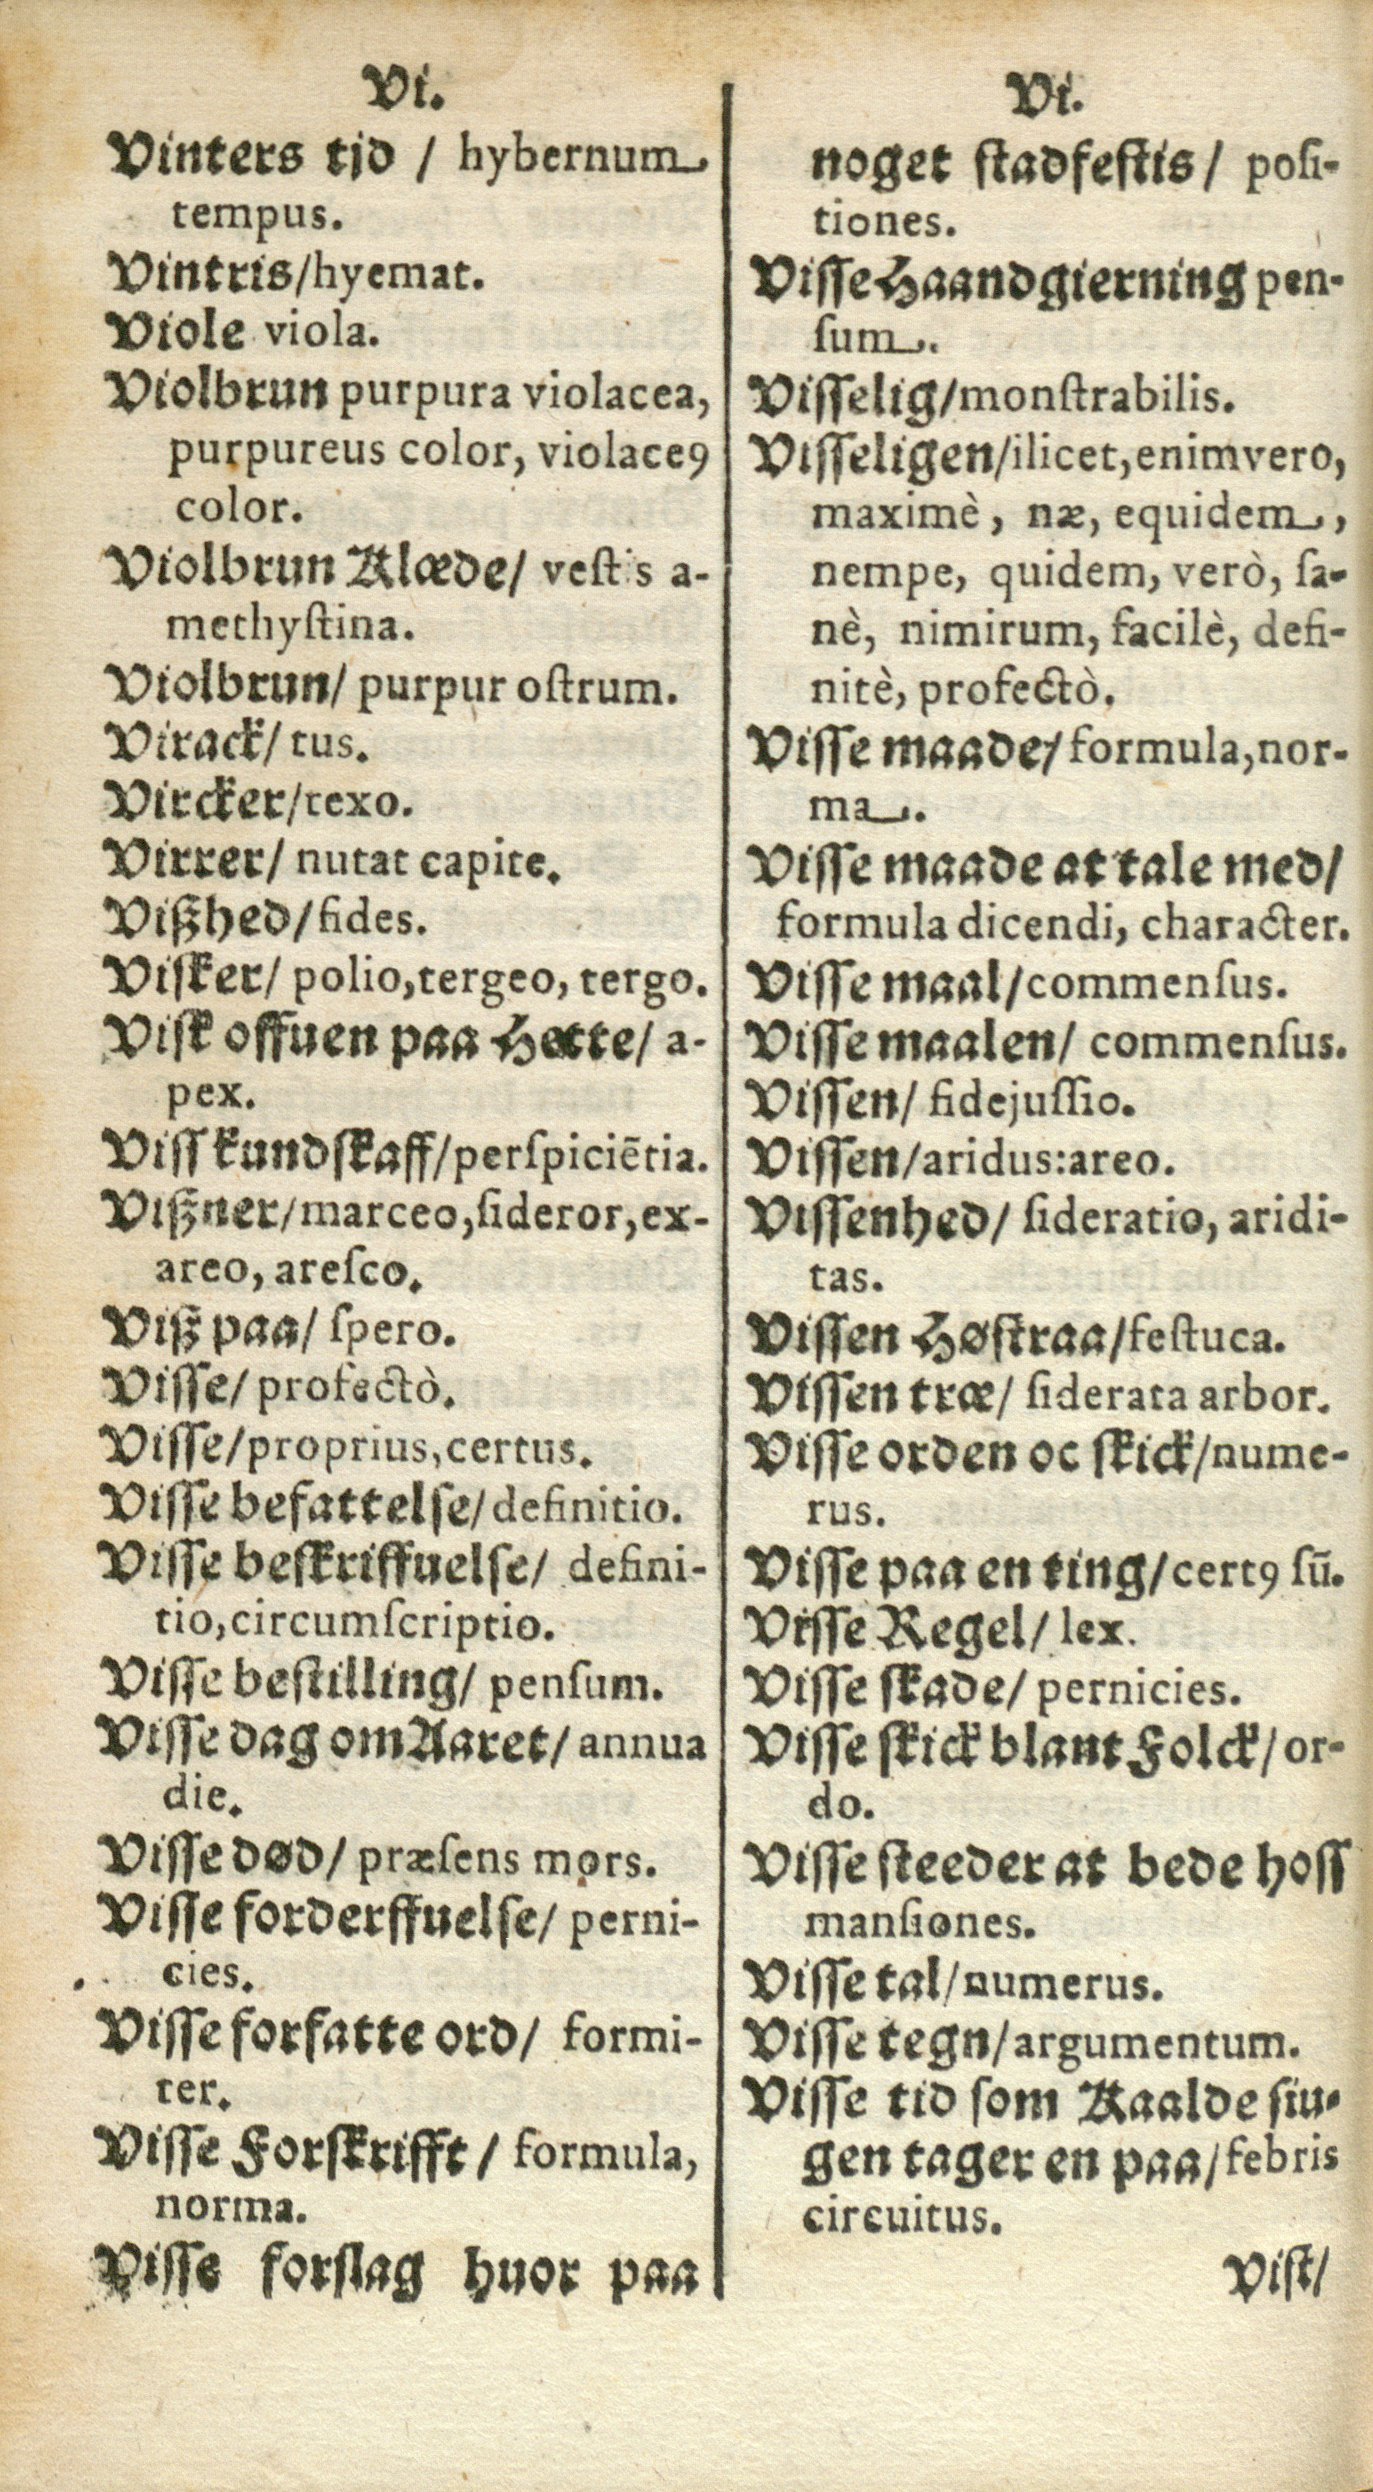 Vi.
Vinters tjd / hybernum
tempus.
Vintris/hyemat.
Viole viola.
Violbrun purpura violacea,
purpureus color, violaceꝯ
color.
Violbrun Klæde/ veſtis a-
methyſtina.
Violbrun/ purpur oſtrum.
Virack/ tus.
Vircker/texo.
Virrer/ nutat capite.
Vißhed/fides.
Viſker/ polio,tergeo, tergo.
Viſk offuen paa Hette/ a-
pex.
Viſſ kundſkaff/perſpiciētia.
Vißner/marceo,ſideror,ex-
areo, areſco.
Viß paa/ ſpero.
Viſſe/ profectò.
Viſſe/proprius,certus.
Viſſe befattelſe/definitio.
Viſſe beſkriffuelſe/ defini-
tio,circumſcriptio.
Viſſe beſtilling/ penſum.
Viſſe dag om Aaret/ annua
die.
Viſſe død/ præſens mors.
Viſſe forderffuelſe/ perni-
cies.
Viſſe forfatte ord/ formi-
ter.
Viſſe Forſkrifft / formula,
norma.
Viſſe forſlag huor paa
Vi.
noget ſtadfeſtis/ poſi-
tiones.
Viſſe Haandgierning pen-
ſum.
Viſſelig/monſtrabilis.
Viſſeligen/ilicet,enimvero,
maximè, næ, equidem,
nempe, quidem, verò, ſa-
nè, nimirum, facilè, defi-
nitè, profectò.
Viſſe maade/ formula,nor-
ma.
Viſſe maade at tale med/
formula dicendi, character.
Viſſe maal/commenſus.
Viſſe maalen/ commenſus.
Viſſen/ fidejuſſio.
Viſſen/aridus:areo.
Viſſenhed/ ſideratio, aridi-
tas.
Viſſen Høſtraa/feſtuca.
Viſſen træ/ ſiderata arbor.
Viſſe orden oc ſkick/nume-
rus.
Viſſe paa en ting/certꝯ ſū.
Viſſe Regel/ lex.
Viſſe ſkade/ pernicies.
Viſſe ſkick blant Folck/ or-
do.
Viſſe ſteeder at bede hoſſ
manſiones.
Viſſe tal/numerus.
Viſſe tegn/argumentum.
Viſſe tid ſom Kaalde ſiu-
gen tager en paa/febris
circuitus.
Viſt/